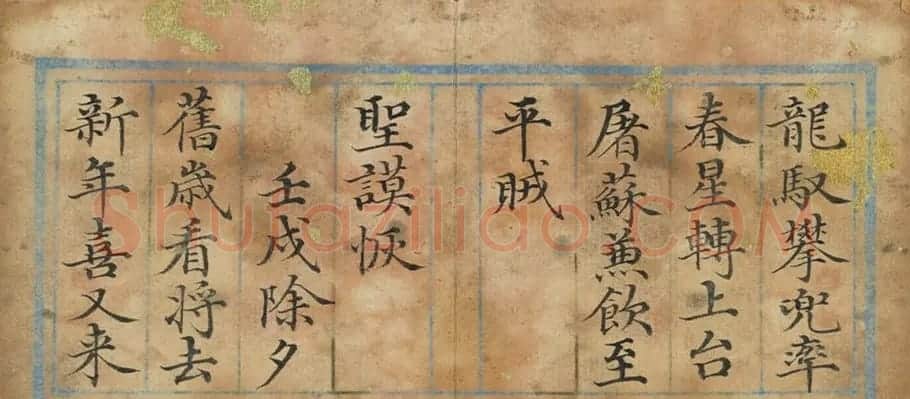 龍馭攀兜率
春星轉上台
屠蘇兼飲至
平賊
聖謨恢
壬戌除夕
舊歲看將去
新年喜又来
shufaziliao.com